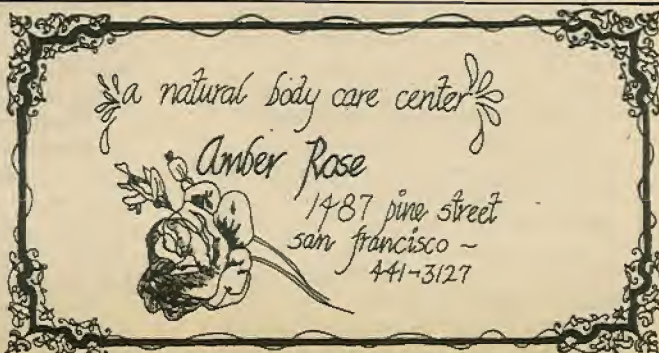 a natural body care center
Amber Rose
1487 pine street
san francisco ~
441-3127